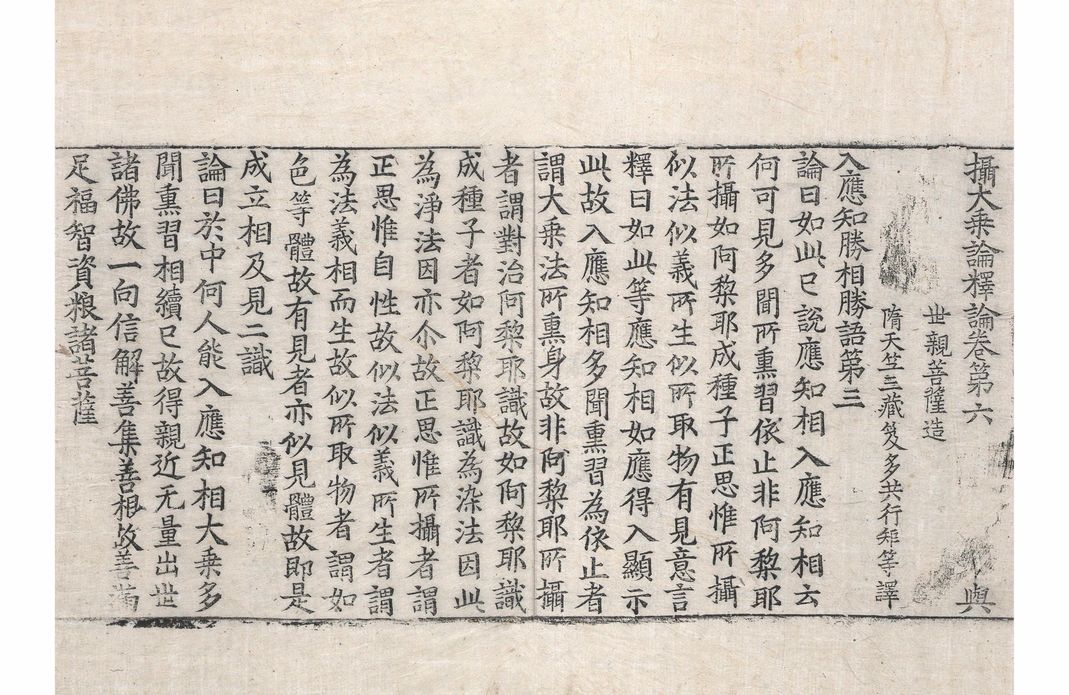 攝大乗論釋論卷第六 與
世親菩薩造
隋天竺三藏笈多共行矩等譯
入應知勝相勝語第三
論曰如此已說應知相入應知相云
何可見多聞所熏習依止非阿黎耶
所攝如阿黎耶成種子正思惟所攝
似法似義所生似所取物有見意言
釋曰如此等應知相如應得入顯示
此故入應知相多聞熏習為依止者
謂大乗法所熏身故非阿黎耶所攝
者謂對治阿黎耶識故如阿黎耶識
成種子者如阿黎耶識為染法因此
為淨法因亦尒故正思惟所攝者謂
正思惟自性故似法似義所生者謂
為法義相而生故似所取物者謂如
色等體故有見者亦似見體故即是
成立相及見二識
論曰於中何人能入應知相大乗多
聞熏習相續已故得親近无量出世
諸佛故一向信解善集善根故善滿
足福智資粮諸菩薩